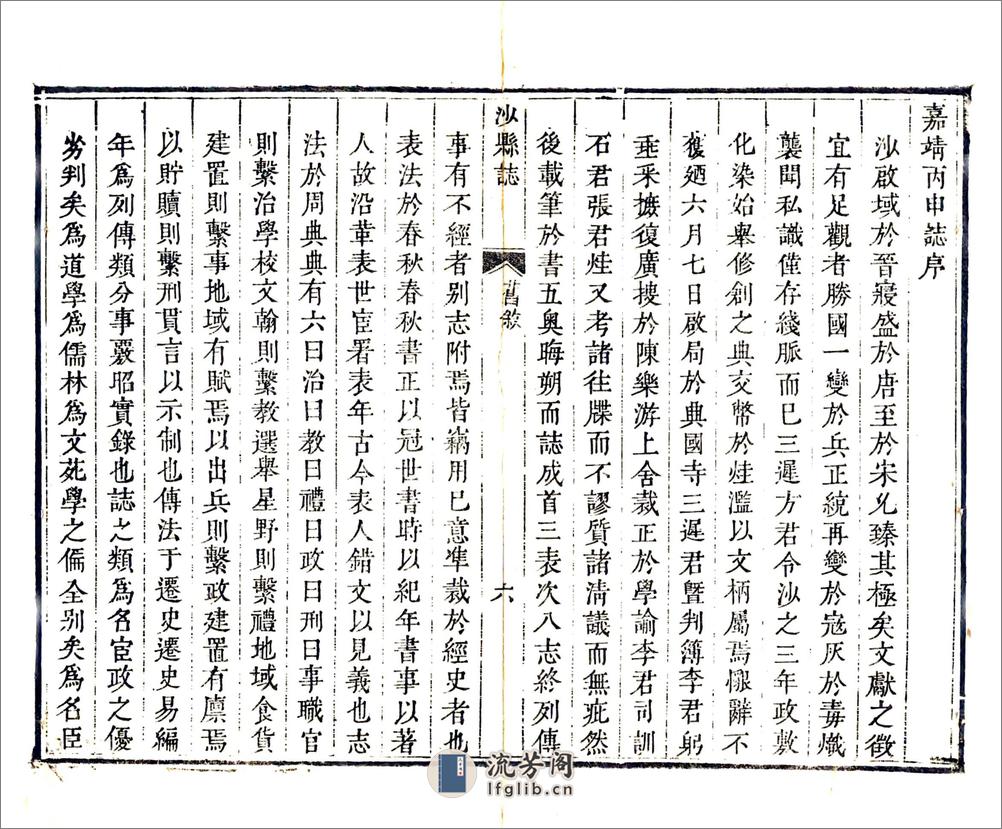 嘉靖丙申誌序
沙啟域於晉寖盛於唐至於宋允臻其極矣文獻之徵
宜有足觀者勝國一變於兵正統再變於寇灰於毒熾
襲聞私識僅存綫脈而巳三遲方君令沙之三年政敷
化染始舉修創之典交幣於烓濫以文柄屬焉懇辭不
獲廼六月七日啟局於典國寺三遲君曁判簿李君躬
垂釆摭復廣搜於陳樂游上舍裁正於學諭李君司訓
石君張君烓又考諸往牒而不謬質諸淸議而無疵然
後載筆於書五奥晦朔而誌成首三表次八志終列傳
沙縣誌
舊敘
六
事有不經者别志附焉皆竊用巳意凖裁於經史者也
表法於春秋春秋書正以冠世書時以紀年書事以著
人故沿革表世宦署表年古今表人錯文以見義也志
法於周典典有六曰治曰教曰禮曰政曰刑曰事職官
則繫治學校文翰則繫教選舉星野則繫禮地域食貨
建置則繫事地域有賦焉以出兵則繫政建置有廪焉
以貯贖則繫刑貫言以示制也傳法于遷史遷史易編
年爲列傳類分事覈昭實錄也誌之類爲名宦政之優
劣判矣爲道學爲儒林爲文苑學之偏全别矣爲名臣
流芳阁
lfglib.cn